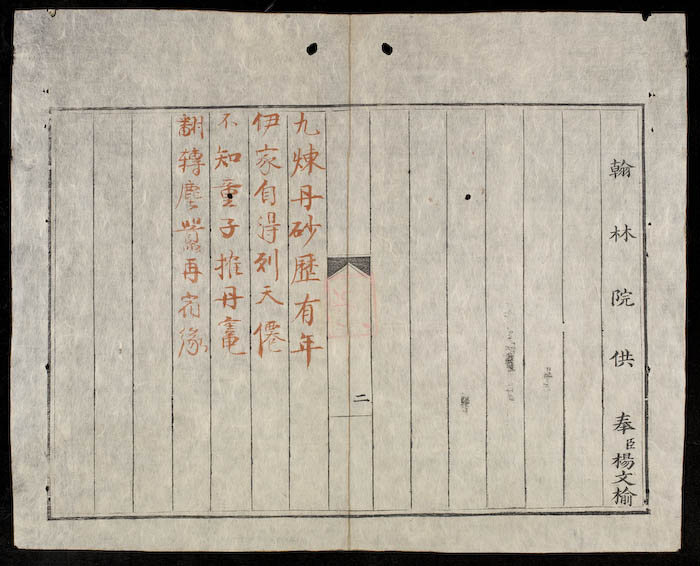 翰林院供奉臣楊文榆
二
九煉丹砂歷有年
伊家自得列天僊
不知童子推丹竃
翻轉塵囂再宿緣